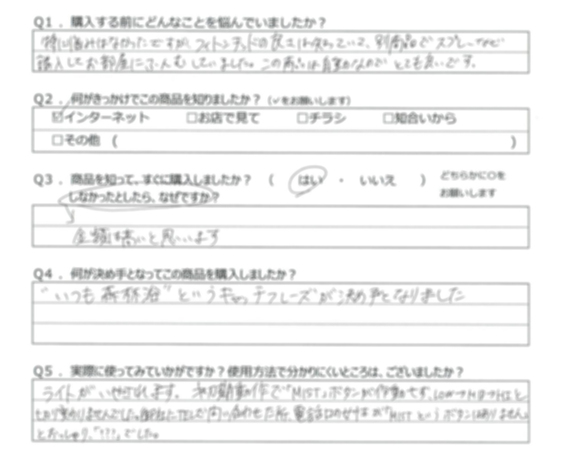 Q1．購入する前にどんなことを悩んでいましたか？
特に悩みはなかったですが、フィトンチッドの良さは知っていて、別商品でスプレーなど
購入してお部屋にふんむしていました。この商品は自動なのでとても良いです。
Q2．何がきっかけでこの商品を知りましたか？（✓をお願いします）
☑インターネット　□お店で見て　□チラシ　□知合いから
□その他（　　　）
Q3．商品を知って、すぐに購入しましたか？（　はい　・　いいえ　）どちらかに○を
お願いします
しなかったとしたら、なぜですか？
金額は高いと思います
Q4．何が決め手となってこの商品を購入しましたか？
“いつも森林浴”というキャッチフレーズが決め手となりました
Q5．実際に使ってみていかがですか？使用方法で分かりにくいところは、ございましたか？
ライトがいやされます。初期動作で「MIST」ボタンが作動せず、LOW→MID→HIと
問い合わせた所、電話口の女性が「MISTというボタンはありません」
とおっしゃり、「???」でした。